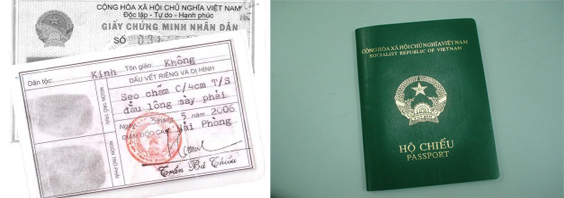 CỘNG HÒA XÃ HỘI CHỦ NGHĨA VIỆT NAM
Độc lập - Tự do - Hạnh phúc
GIẤY CHỨNG MINH NHÂN DÂN
SỐ
Dân tộc: Kinh Tôn giáo: Không
DẤU VẾT RIÊNG VÀ DỊ HÌNH
Sẹo chấm C/4cm T/S
đầu lông mày phải
5 năm 2006
Hải Phòng
Trần Bá Thiều
CỘNG HÒA XÃ HỘI CHỦ NGHĨA VIỆT NAM
SOCIALIST REPUBLIC OF VIETNAM
HỘ CHIẾU
PASSPORT